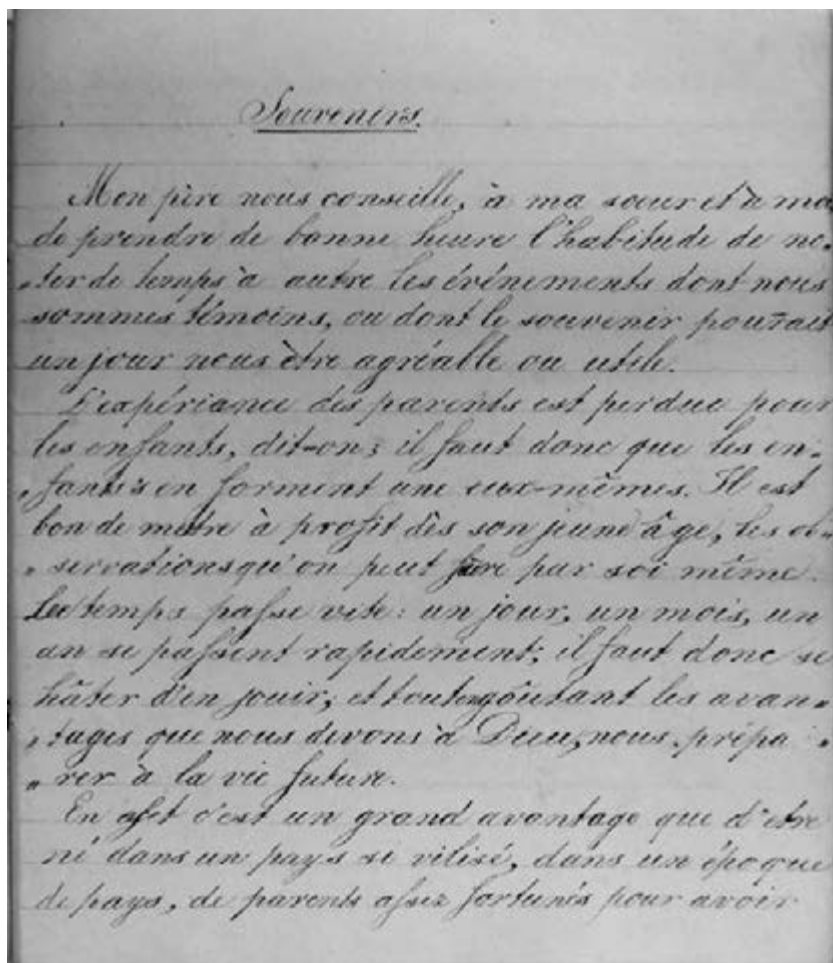 Souvenirs.
Mon père nous conseille, à ma sœur et à moi
de prendre de bonne heure l'habitude de no-
„ter de temps à autre les événements dont nous
sommes témoins, ou dont le souvenir pourait
un jour nous être agréable ou utile.
L'expériance des parents est perdue pour
les enfants, dit-on; il faut donc que les en-
„fants s'en forment une eux-mêmes. Il est
bon de metre à profit dès son jeune âge, les ob-
„servations qu'on peut faire par soi même.
Le temps passe vite: un jour, un mois, un
an se passent rapidement; il faut donc se
hâter d'en jouir, et tout en goûtant les avan-
„tages que nous devons à Dieu, nous prépa„
„rer à la vie future.
En efet c'est un grand avantage que d'etre
né dans un pays si vilisé, dans un époque
de pays, de parents assez fortunés pour avoir